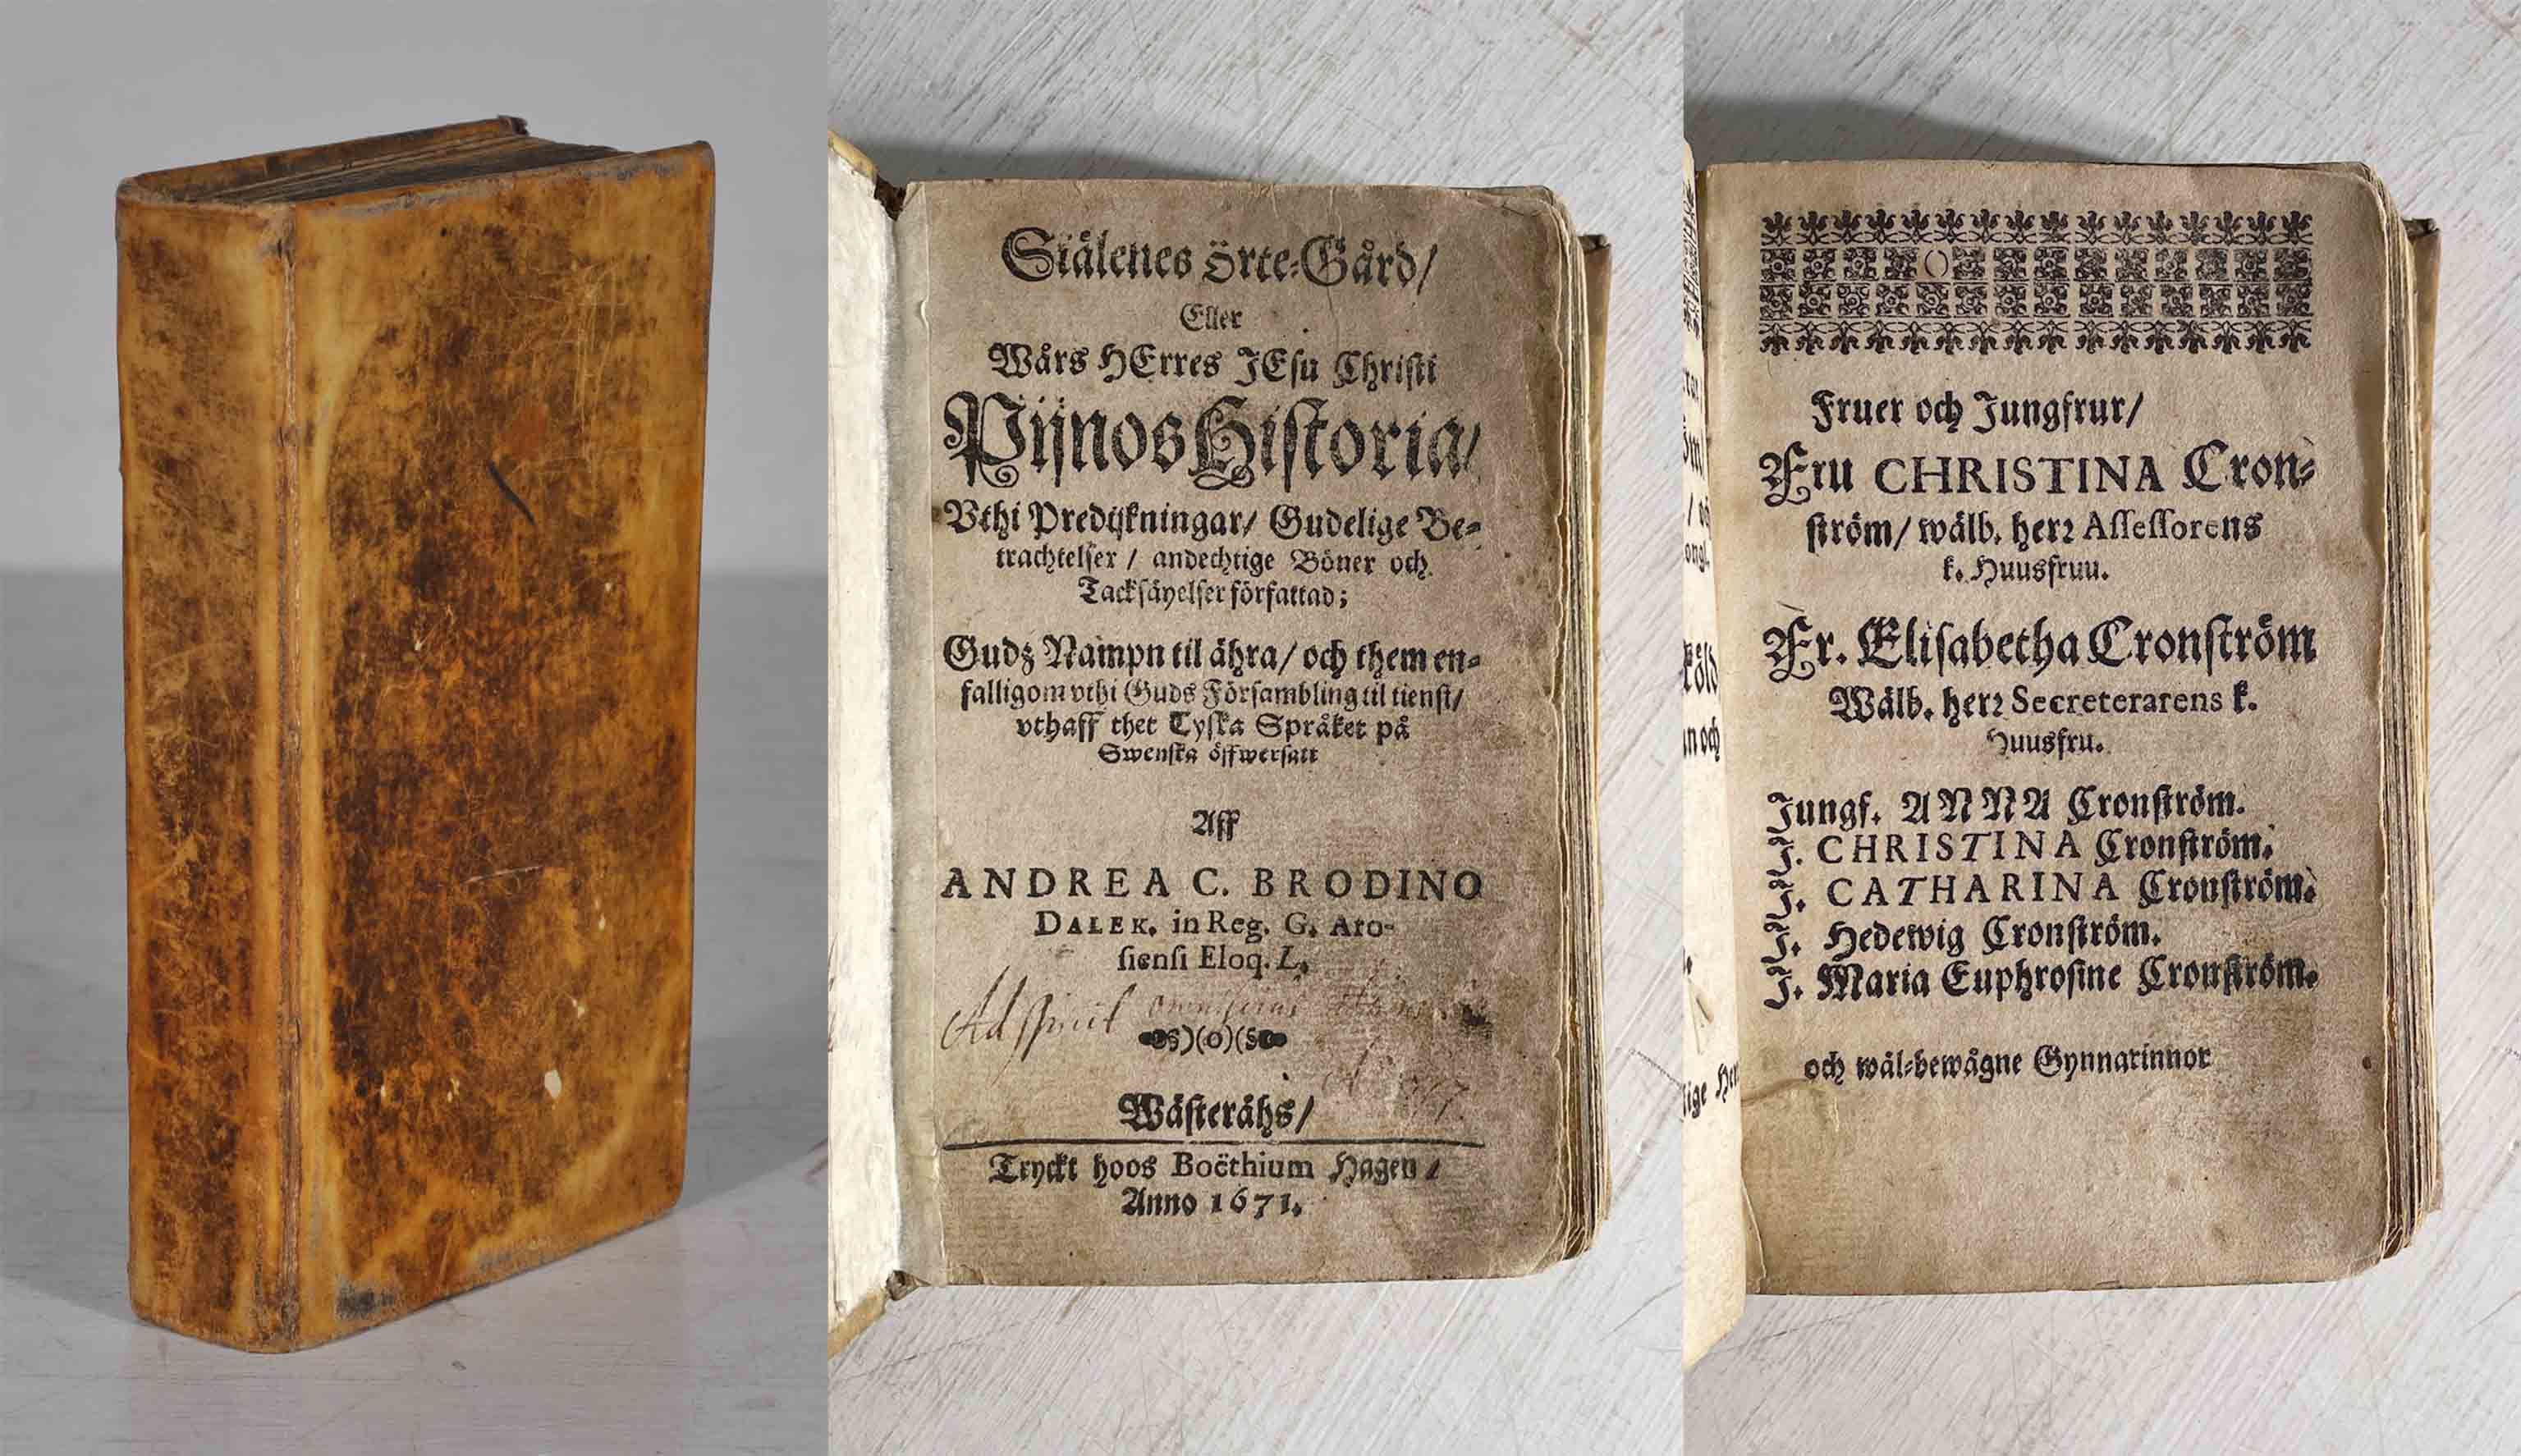 Siälenes örte-Gård/
Eller
Wårs HErres JEsu Christi
Pijnos Historia/
Vthi Predijkningar/ Gudelige Be-
trachtelser / andechtige Böner och
Tacksäyelser författad;
Gudz Nampn til ähra/ och them en-
falligom vthi Guds Försambling til tienst/
vthaff thet Tyska Språket på
Swenska öffwersatt
Aff
ANDREA C. BRODINO
DALEK. in Reg. G. Aro-
siensi Eloq. L.
)(o)(
Wästeråhs/
Tryckt hoos Boëthium Hagen /
Anno 1671.
()
Fruer och Jungfrur/
Fru CHRISTINA Cron-
ström/ wälb. herr Assessorens
k. Huusfruu.
Fr. Elisabetha Cronström
Wälb. herr Secreterarens k.
Huusfru.
Jungf. ANNA Cronström.
J. CHRISTINA Cronström.
J. CATHARINA Cronström.
J. Hedewig Cronström.
J. Maria Euphrosine Cronström.
och wäl-bewågne Gynnarinnor